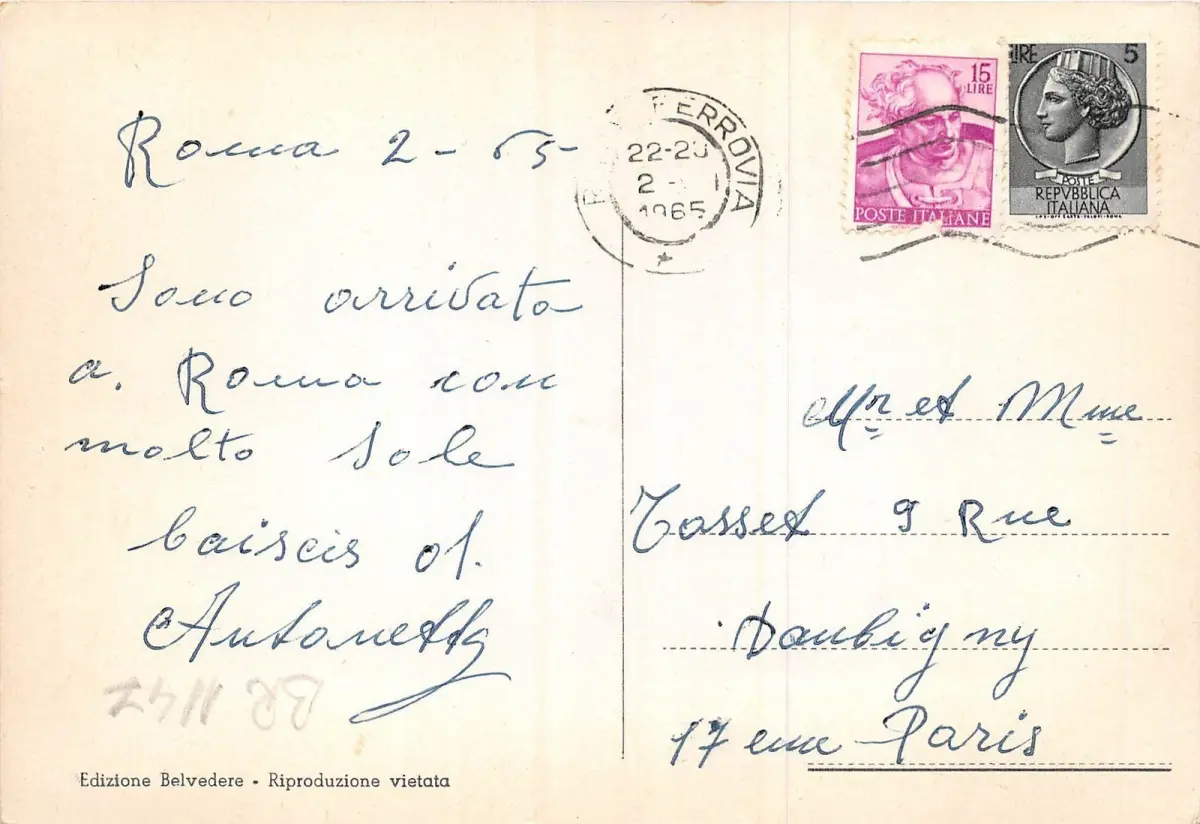 Roma 2-65-
Sono arrivata
a. Roma con
molto sole
baiscis d.
Antonetta
BR 1147
Edizione Belvedere - Riproduzione vietata
FERROVIA
22-23
2 - I
1965
15
LIRE
POSTE ITALIANE
LIRE 5
POSTE
REPVBBLICA
ITALIANA
Mr et Mme
Tasset 9 Rue
Daubigny
17 eme Paris